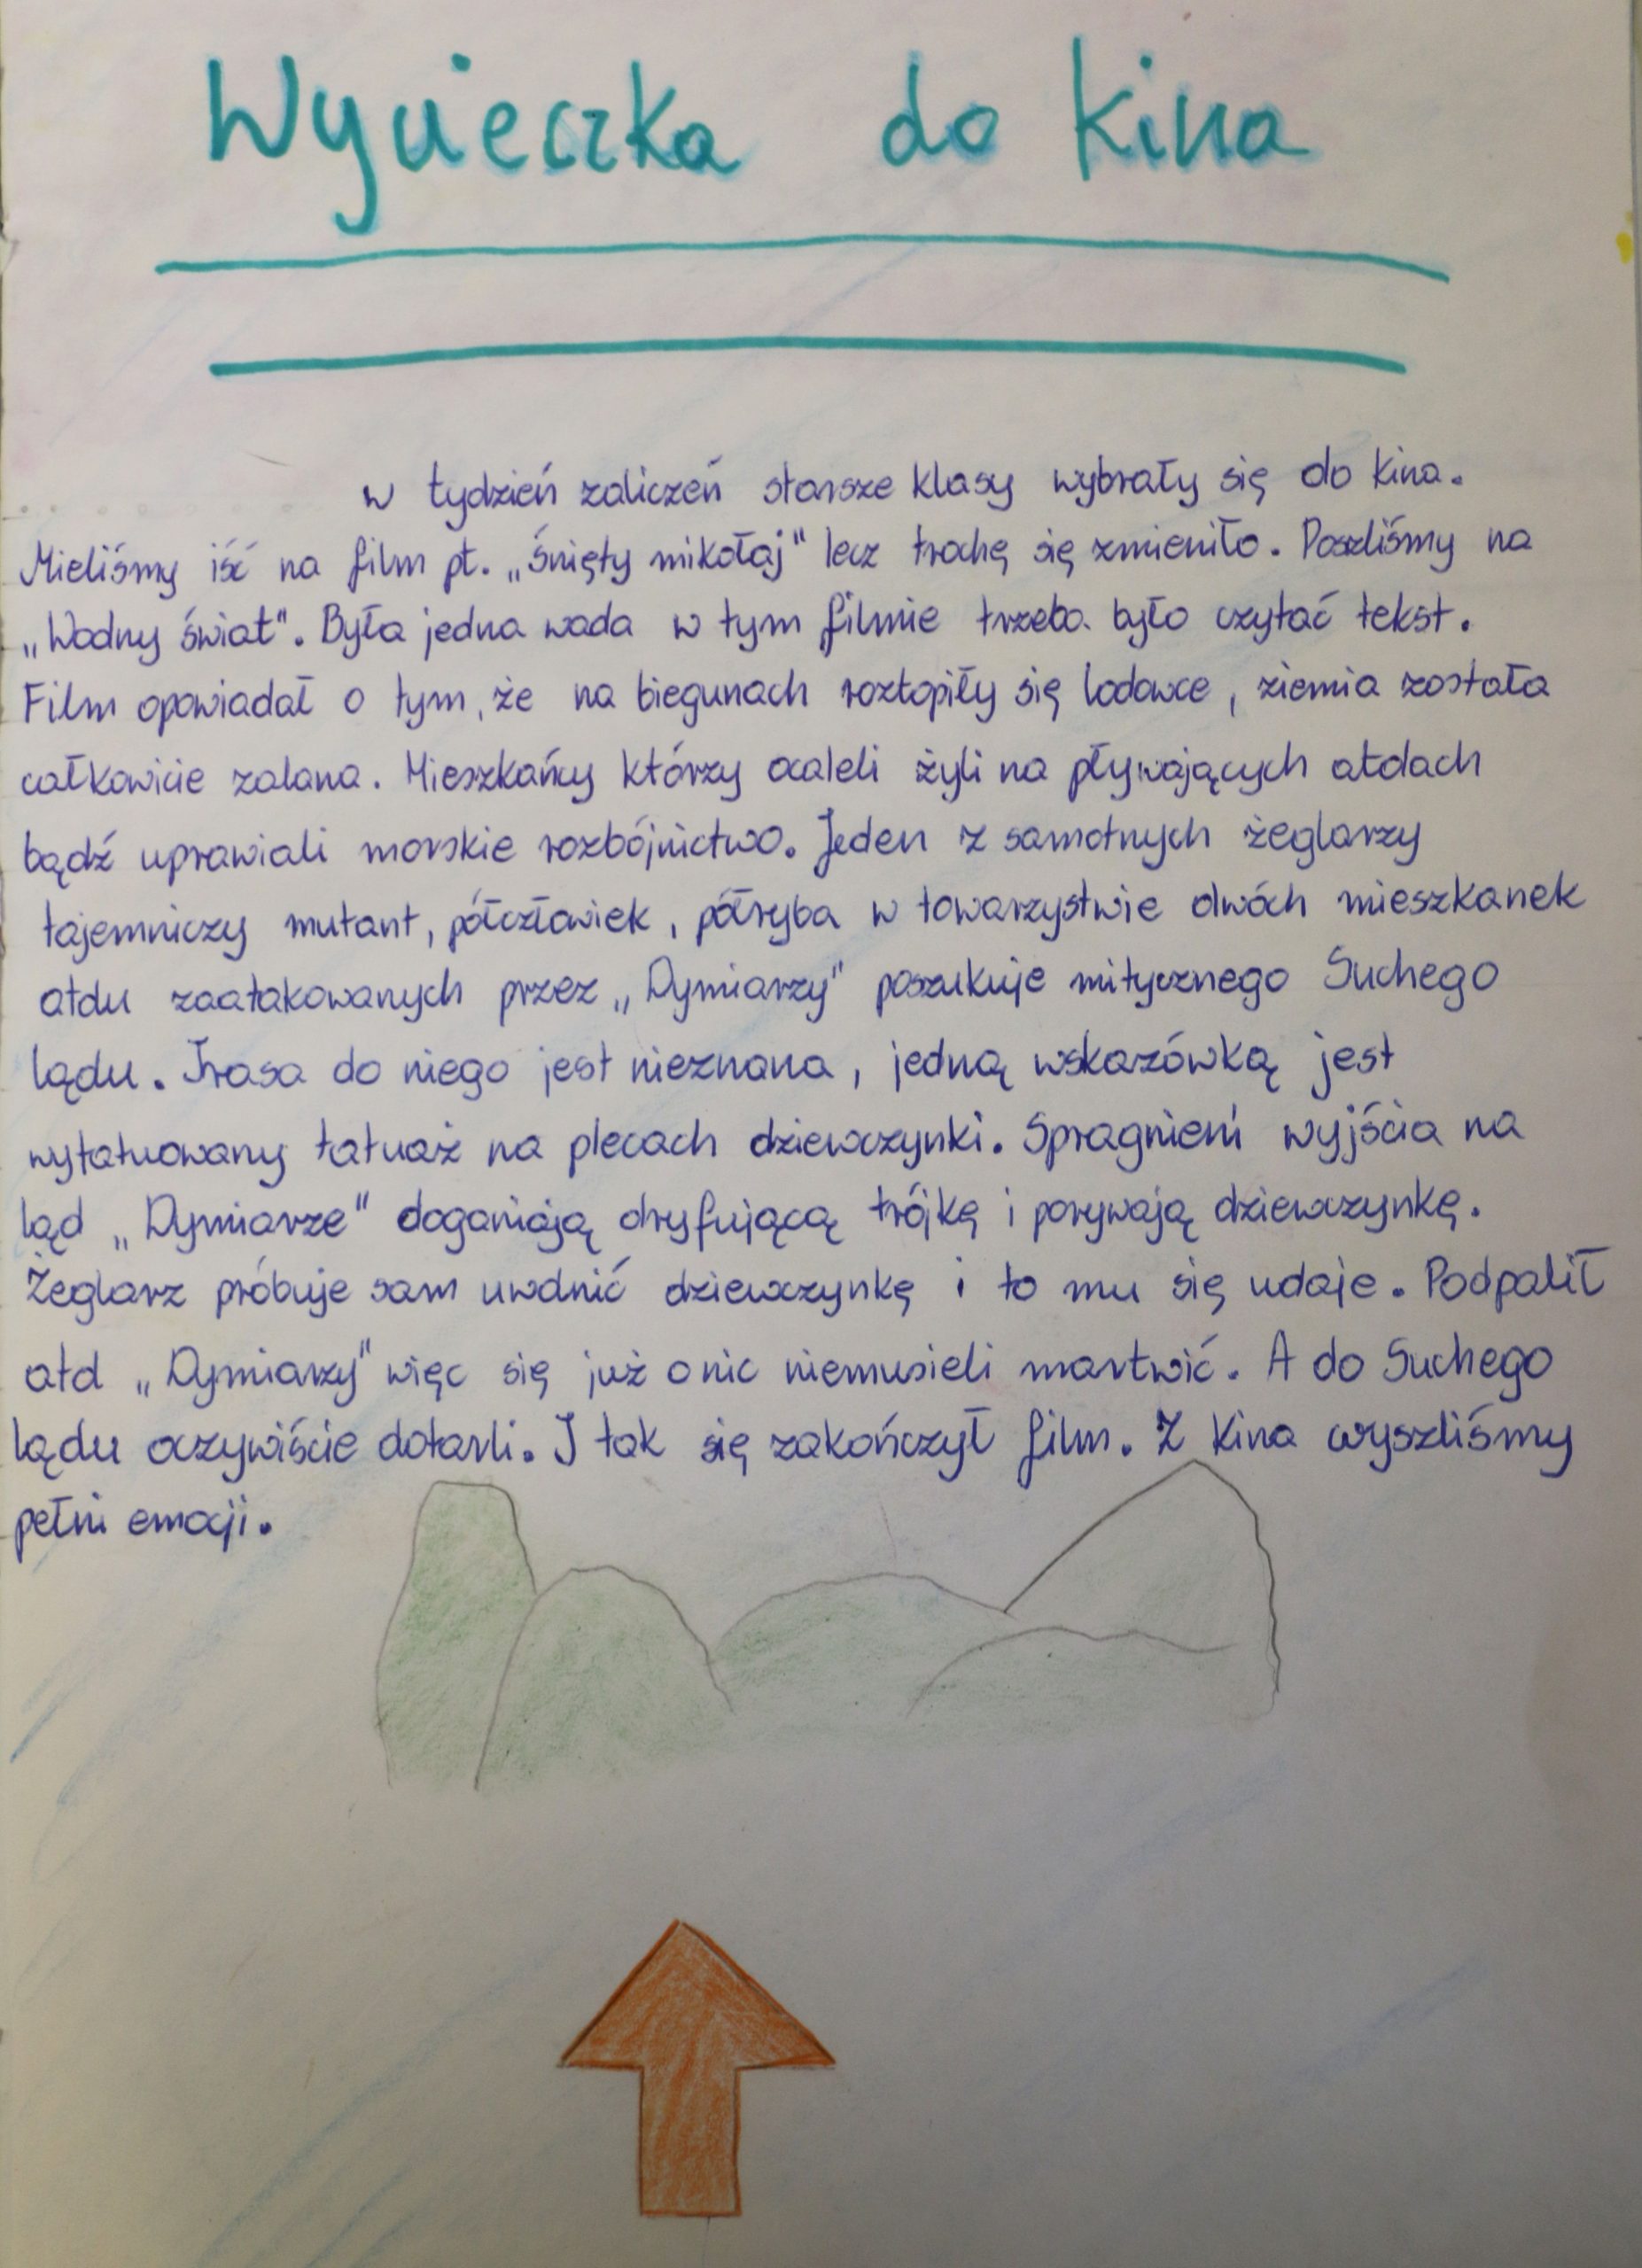 Wycieczka do kina
w tydzień zaliczeń starsze klasy wybrały się do kina.
Mieliśmy iść na film pt. „Śnięty mikołaj" lecz trochę się zmieniło. Poszliśmy na
„Wodny świat". Była jedna wada w tym filmie trzeba było czytać tekst.
Film opowiadał o tym, że na biegunach roztopiły się lodowce, ziemia została
całkowicie zalana. Mieszkańcy którzy ocaleli żyli na pływających atdach
bądź uprawiali morskie rozbójnictwo. Jeden z samotnych żeglarzy
tajemniczy mutant, półczłowiek, półryba w towarzystwie dwóch mieszkanek
atdu zaatakowanych przez „Dymiarzy" poszukuje mitycznego Suchego
lądu. Trasa do niego jest nieznana, jedną wskazówką jest
wytatuowany tatuaż na plecach dziewczynki. Spragnieni wyjścia na
ląd „Dymiarze" doganiają dryfującą trójkę i porywają dziewczynkę.
Żeglarz próbuje sam uwolnić dziewczynkę i to mu się udaje. Podpalił
atd „Dymiarzy" więc się już o nic niemusieli martwić. A do Suchego
lądu oczywiście dotarli. I tak się zakończył film. Z kina wyszliśmy
pełni emocji.